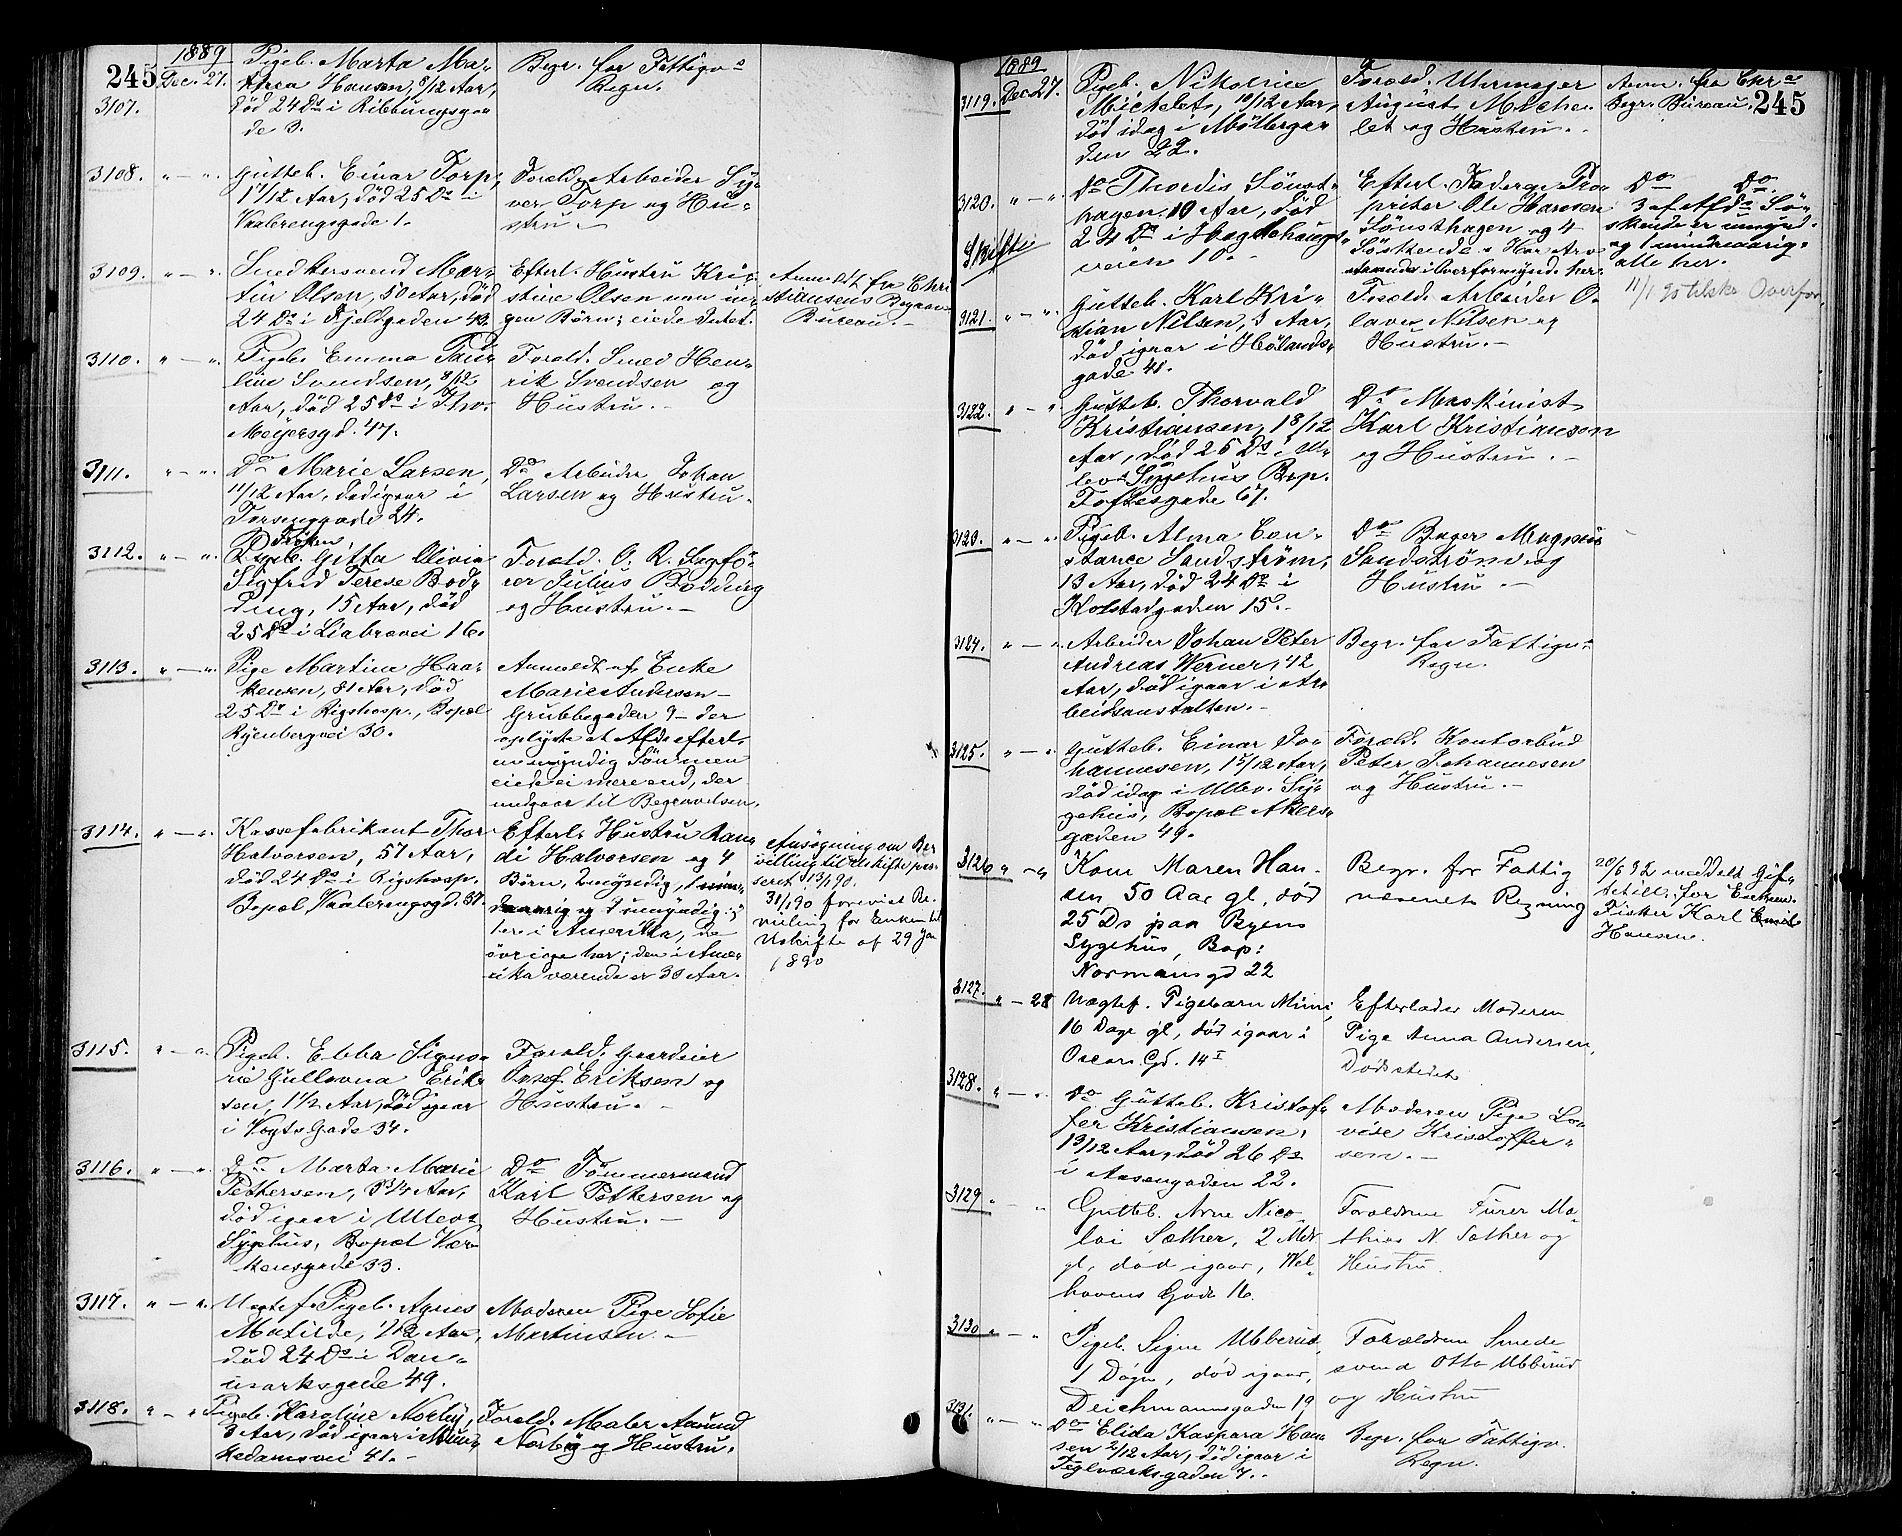 245
1889
3107.
Dec. 27.
Pigeb. Marta Ma-
thea Hansen, 8/12 Aar,
død 24 Ds i Ribbungsga-
de 3.
Begr. for Fattigvs
Regn.
3108.
Gutteb. Einar Torp,
17/12 Aar, død 25 Ds i
Vaalerengsgade 1.
Foræld. Arbeider Sy-
ver Torp og Hu-
stru.
3109.
Smedkersvend Mar-
tin Olsen, 50 Aar, død
24 Ds i Fjeldgaden 43.
Efterl. Hustru Kri-
stine Olsen men in-
gen Børn; eiede Intet.
Anmeldt fra Chri
stiansens Begrav
Bureau.
3110.
Pigeb. Emma Pau-
line Svendsen, 8/12
Aar, død 25 Ds i Thv.
Meyersgd. 47.
Foræld. Smed Hen-
rik Svendsen og
Hustru.
3111.
Do Marie Larsen,
11/12 Aar, død igaar i
Torsenggade 24.
Do Arbeider Johan
Larsen og Hustru.
3112.
Frøken
Pigeb. Gitta Olivia
Sigfrid Terese Bod-
ding, 15 Aar, død
25 Ds i Liabrovei 16.
Foræld. O. R. Sagfø-
rer Julius Bodding
og Hustru.
3113.
Pige Martine Haa-
kensen, 81 Aar, død
25 Ds i Rigshosp., Bopæl
Ryenbergvei 30.
Anmeldt af Enke
Marie Andersen
Grubbegaden 9 - der
oplyste at Afde efterl.
en myndig Søn men
eiede ei mere end, der
medgaar til Begravelsen.
3114.
Kassefabrikant Thor
Halvorsen, 57 Aar,
død 24 Ds i Rigshosp.
Bopæl, Vaalerengsgd. 37.
Efterl. Hustru Ran-
di Halvorsen og 4
Børn, 2 myndig, 1 min-
dreaarig og 1 umyndig;
i Amerika, de
øvrige her; den i Ame-
rika værende er 30 Aar.
Ansøgning om Be
villing til Uskifte pas-
seret 13/1 90.
31/1 90 forevist Be-
villing for Enken til
Uskifte af 29 Jan
1890
3115.
Pigeb. Ebba Signo-
ra Gullovna Erik-
sen, 1 1/2 Aar, død igaar
i Vogts Gade 34.
Foræld. Gaardeier
Josef Eriksen og
Hustru.
3116.
Do Marta Marie
Pettersen, 3 3/4 Aar,
død igaar i Ullevs
Sygehus, Bopæl Vær-
kensgade 33.
Do Tømmermand
Karl Pettersen og
Hustru.
3117.
Uægtef. Pigeb. Agnes
Matilde, 1/12 Aar,
død 24 Ds i Dan-
marksgade 49.
Moderen Pige Sofie
Martinsen.
3118.
Pigeb. Karoline Norby,
3 Aar, død igaar i Mun-
kedamsvei 41.
Foræld. Maler Amund
Norby og Hustru.
1889
245
3119.
Dec 27.
Pigeb. Nikoline
Michelet, 10/12 Aar,
død idag i Møllerga-
den 22.
Foræld. Uhrmager
August Miche-
let og Hustru.
Anm. fra Chrs
Begr. Bureau.
3120.
Skifte
Do Thordis Sønst-
hagen, 10 Aar, død
24 Ds i Hegdehaugs-
veien 10.
Efterl. Fader Pro-
prietær Ole Hansen
Sønsthagen og 4
Søskende. Har Arv
i Overformynd. her.
Do Do
3 af Afds Sø-
skende er umynd.
og 1 mindreaarig.
alle her.
11/1 90 tilskr Overfor.
3121.
Gutteb. Karl Kri-
stian Nilsen, 3 Aar,
død igaar i Hølands-
gade 41.
Foræld. Arbeider O-
laves Nilsen og
Hustru.
3122.
Gutteb. Thorvald
Kristiansen, 18/12
Aar, død 25 Ds i Ul-
levs Sygehus Bop.
Toftesgade 67.
Do Maskinist
Karl Kristiansen
og Hustru.
3123.
Pigeb. Alma Con-
stance Sandstrøm,
13 Aar, død 24 Ds i
Kolstadgaden 15.
Do Bager Magnus
Sandstrøm og
Hustru.
3124.
Arbeider Johan Peter
Andreas Werner, 42
Aar, død igaar i Ar-
beidsanstalten.
Begr. for Fattigvs
Regn.
3125.
Gutteb. Einar Jo-
hannesen, 15/12 Aar,
død idag i Ullev. Sy-
gehus, Bopæl Akers-
gaden 49.
Foræld. Kontorbud
Peter Johannesen
og Hustru.
3126
Kone Maren Han-
sen 50 Aar gl, død
25 Ds paa Byens
Sygehus, Bop:
Normansgd 22
Begr. for Fattig
væsenets Regning
20/6 92 meddelt Gif-
tetill. for Enkem.
Fisker Karl Emil
Hansen.
3127.
28
Uægtef. Pigebarn Mimi,
16 Dage gl, død igaar i
Oscars Gd. 14 I
Efterlader Moderen
Pige Anna Andersen,
Dødsstedet
3128.
Do Gutteb. Kristof-
fer Kristiansen,
13/12 Aar, død 26 Ds
i Aasengaden 22.
Moderen Pige Lo-
vise Kristoffer-
sen.
3129
Gutteb. Arne Nico-
lai Sæther, 2 Mdr
gl, død igaar, Wel-
havens Gade 16.
Forældrene Furer Ma-
thias N Sæther og
Hustru.
3130
Pigeb. Signe Ubberud,
1 Døgn, død igaar,
Deichmannsgaden 19
Forældrene Smede-
svend Otto Ubberud
og Hustru
3131.
Do Elida Kaspara Han
sen 2/12 Aar, død igaar i
Teglværksgaden 7.
Begr. for Fattigv.
Regn.